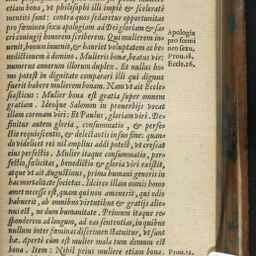 etiam bona, ut philosophi illi impiè & sceleratè
mentiti sunt: contra quos sedaretur opportunitas
pro fœmineo sexu apologiam ad Dei gloriam & san
cti coniugij honorem scriberem. Qui mulierem in-
uenit, bonum inuenit, & hauriet voluptatem ac be-
nedictionem à domino. Mulieris bonæ, beatus vir:
numerus annorum illorum duplex. Et nullus ho
mo potest in dignitate comparari illi qui dignus
fuerit habere mulierem bonam. Nam ut ait Eccle
siasticus: Mulier bona est gratia super omnem
gratiam. Ideoque Salomon in prouerbijs vocat
illam coronam viri: Et Paulus, gloriam viri. De-
finitur autem gloria, consummatio, & perfe-
ctio requiescentis, & delectantis in suo fine: quan
do videlicet rei nil amplius addi potest, ut crescat
eius perfectio. Mulier itaque consummatio, perfe
ctio, fœlicitas, benedictio & gloria viri existit,
atque ut ait Augustinus, prima humani generis in
hac mortalitate societas. Idcirco illam omnis homo
amet necesse est, quam qui non amauerit, qui odio
habuerit, ab omnibus virtutibus & gratijs alie-
nus est, ne dum humanitate. Primum itaque re-
spönderem ad longum, ad eas sententias, in quibus
nullum inter fœminas discrimen statuitur, ut sunt
hæ. Apertè cùm est mulier mala tum demum est
bona. Item: Nihil peius muliere etiam bona.
Apologia
pro fœmi
neo sexu.
Prou.18.
Eccle.26.
Prou.12.